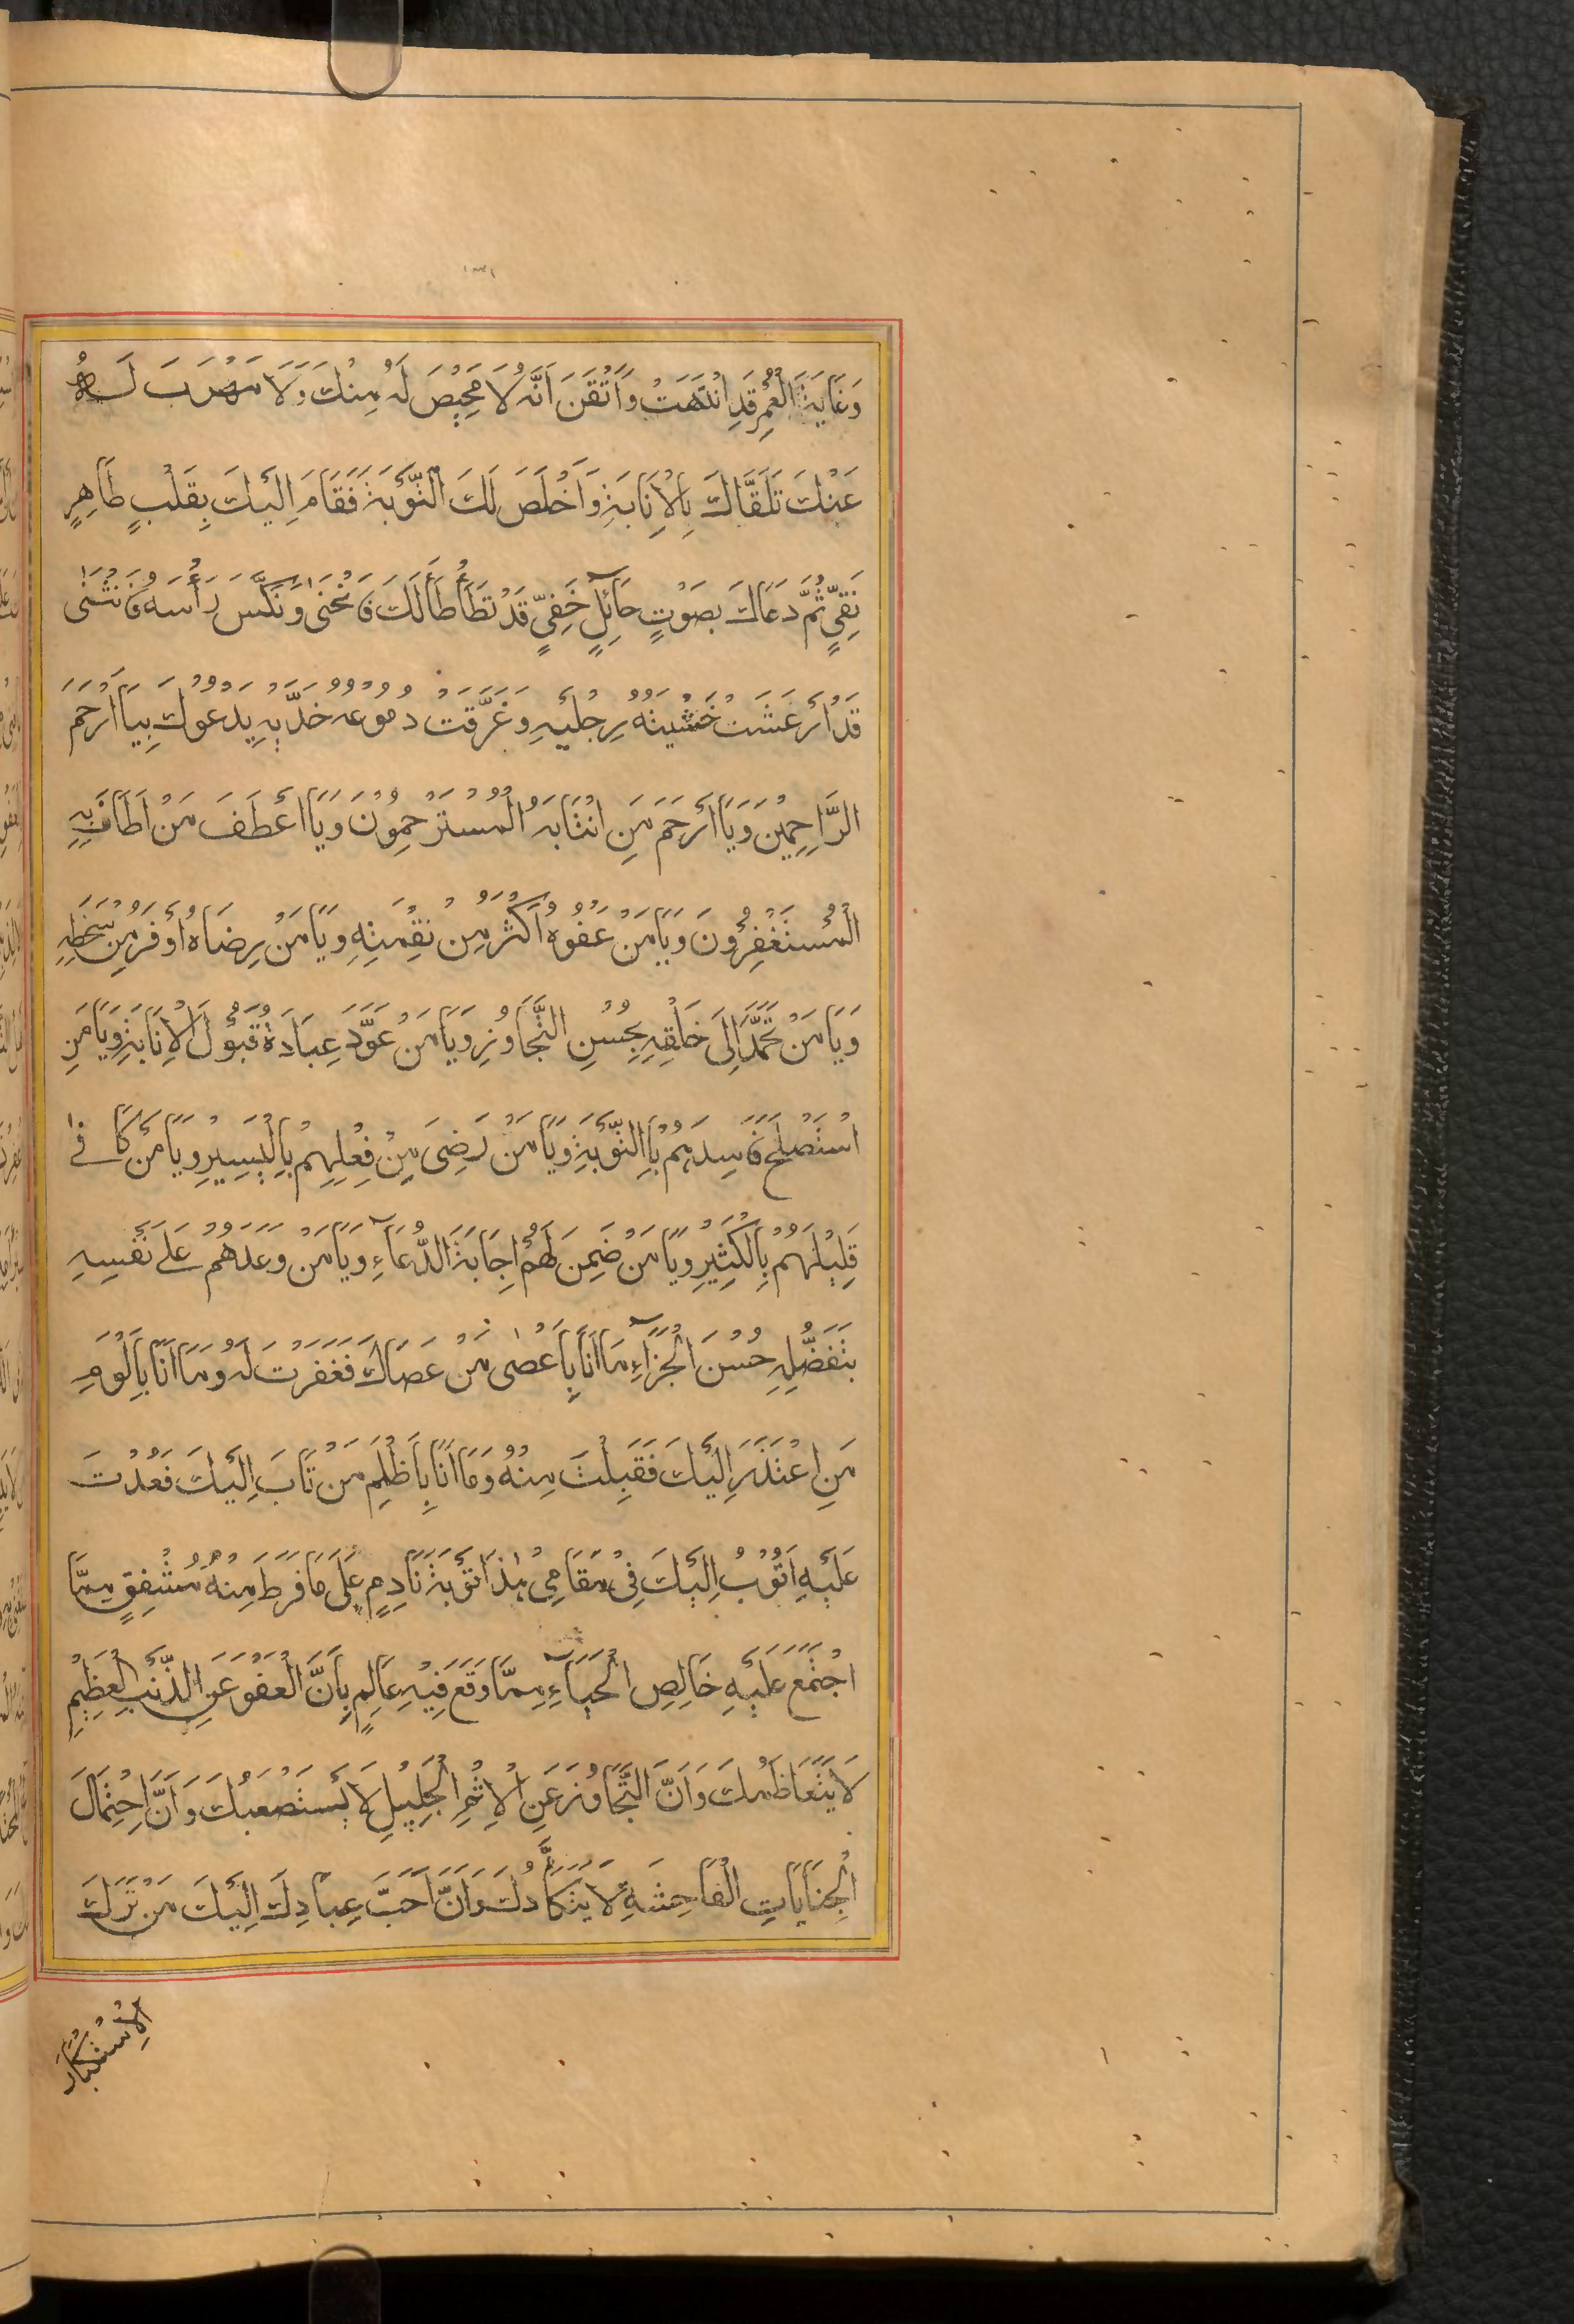 ١٣١
وَغَايَةَ الْعُمُرِ قَدِ انْتَهَتْ وَاَتْقَنَ اَنَّهُ لَا مَحِيْصَ لَهُ مِنْكَ وَلَا مَهْرَبَ لَهُ
عَنْكَ تَلَقَّاكَ بِالْاِنَابَةِ وَاَخْلَصَ لَكَ التَّوْبَةَ فَقَامَ اِلَيْكَ بِقَلْبٍ طَاهِرٍ
نَقِيٍّ ثُمَّ دَعَاكَ بِصَوْتٍ حَآئِلٍ خَفِيٍّ قَدْ تَطَأْطَأَ لَكَ فَانْحَنٰى وَنَكَّسَ رَأْسَهُ فَانْثَنٰى
قَدْ اَرْعَشَتْ خَشْيَتُهُ رِجْلَيْهِ وَغَرَّقَتْ دُمُوْعُهُ خَدَّيْهِ يَدْعُوْكَ بِيَا اَرْحَمَ
الرَّاحِمِيْنَ وَيَا اَرْحَمَ مَنِ انْتَابَهُ الْمُسْتَرْحِمُوْنَ وَيَا اَعْطَفَ مَنْ اَطَافَ بِهِ
الْمُسْتَغْفِرُوْنَ وَيَا مَنْ عَفْوُهُ اَكْثَرُ مِنْ نَقِمَتِهِ وَيَا مَنْ رِضَاهُ اَوْفَرُ مِنْ سَخَطِهِ
وَيَا مَنْ تَحَمَّدَ اِلَى خَلْقِهِ بِحُسْنِ التَّجَاوُزِ وَيَا مَنْ عَوَّدَ عِبَادَهُ قَبُوْلَ الْاِنَابَةِ وَيَا مَنِ
اسْتَصْلَحَ فَاسِدَهُمْ بِالتَّوْبَةِ وَيَا مَنْ رَضِيَ مِنْ فِعْلِهِمْ بِالْيَسِيْرِ وَيَا مَنْ كَافٰى
قَلِيْلَهُمْ بِالْكَثِيْرِ وَيَا مَنْ ضَمِنَ لَهُمْ اِجَابَةَ الدُّعَآءِ وَيَا مَنْ وَعَدَهُمْ عَلٰى نَفْسِهِ
بِتَفَضُّلِهِ حُسْنَ الْجَزَآءِ مَا اَنَا بِاَعْصٰى مَنْ عَصَاكَ فَغَفَرْتَ لَهُ وَمَا اَنَا بِاَلْوَمِ
مَنِ اعْتَذَرَ اِلَيْكَ فَقَبِلْتَ مِنْهُ وَمَا اَنَا بِاَظْلَمِ مَنْ تَابَ اِلَيْكَ فَعُدْتَ
عَلَيْهِ اَتُوْبُ اِلَيْكَ فِيْ مَقَامِيْ هٰذَا تَوْبَةَ نَادِمٍ عَلَى مَا فَرَطَ مِنْهُ مُشْفِقٍ مِمَّا
اجْتَمَعَ عَلَيْهِ خَالِصِ الْحَيَآءِ مِمَّا وَقَعَ فِيْهِ عَالِمٍ بِاَنَّ الْعَفْوَ عَنِ الذَّنْبِ الْعَظِيْمِ
لَا يَتَعَاظَمُكَ وَاَنَّ التَّجَاوُزَ عَنِ الْاِثْمِ الْجَلِيْلِ لَا يَسْتَصْعِبُكَ وَاَنَّ احْتِمَالَ
الْجِنَايَاتِ الْفَاحِشَةِ لَا يَتَكَأَّدُكَ وَاَنَّ اَحَبَّ عِبَادِكَ اِلَيْكَ مَنْ تَرَكَ
الْاِسْتِكْبَارَ